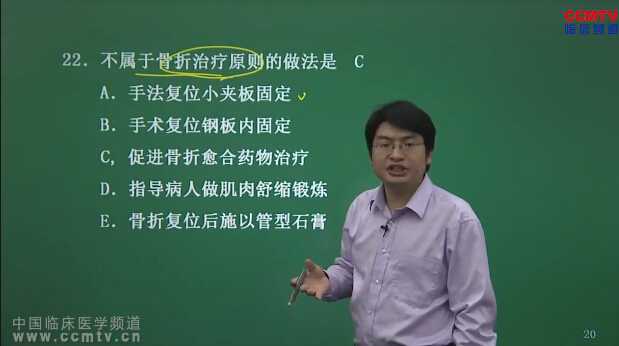 CCMTV
临床频道
22. 不属于骨折治疗原则的做法是 C
A. 手法复位小夹板固定
B. 手术复位钢板内固定
C, 促进骨折愈合药物治疗
D. 指导病人做肌肉舒缩锻炼
E. 骨折复位后施以管型石膏
中国临床医学频道
www.ccmtv.cn
20